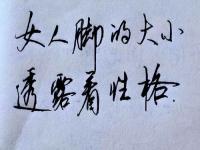 女人脚的大小
透露着性格.